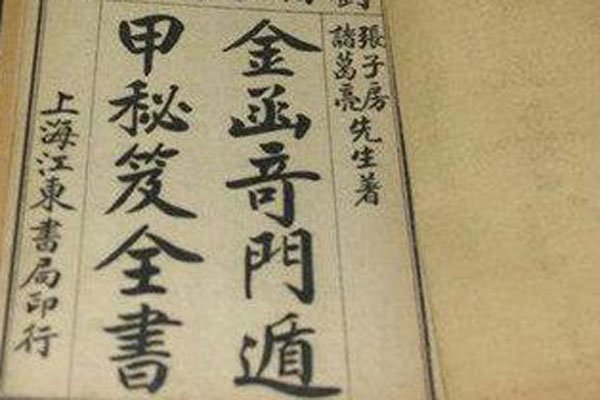 張子房
諸葛亮
先生著
金函奇門遁
甲秘笈全書
上海江東書局印行